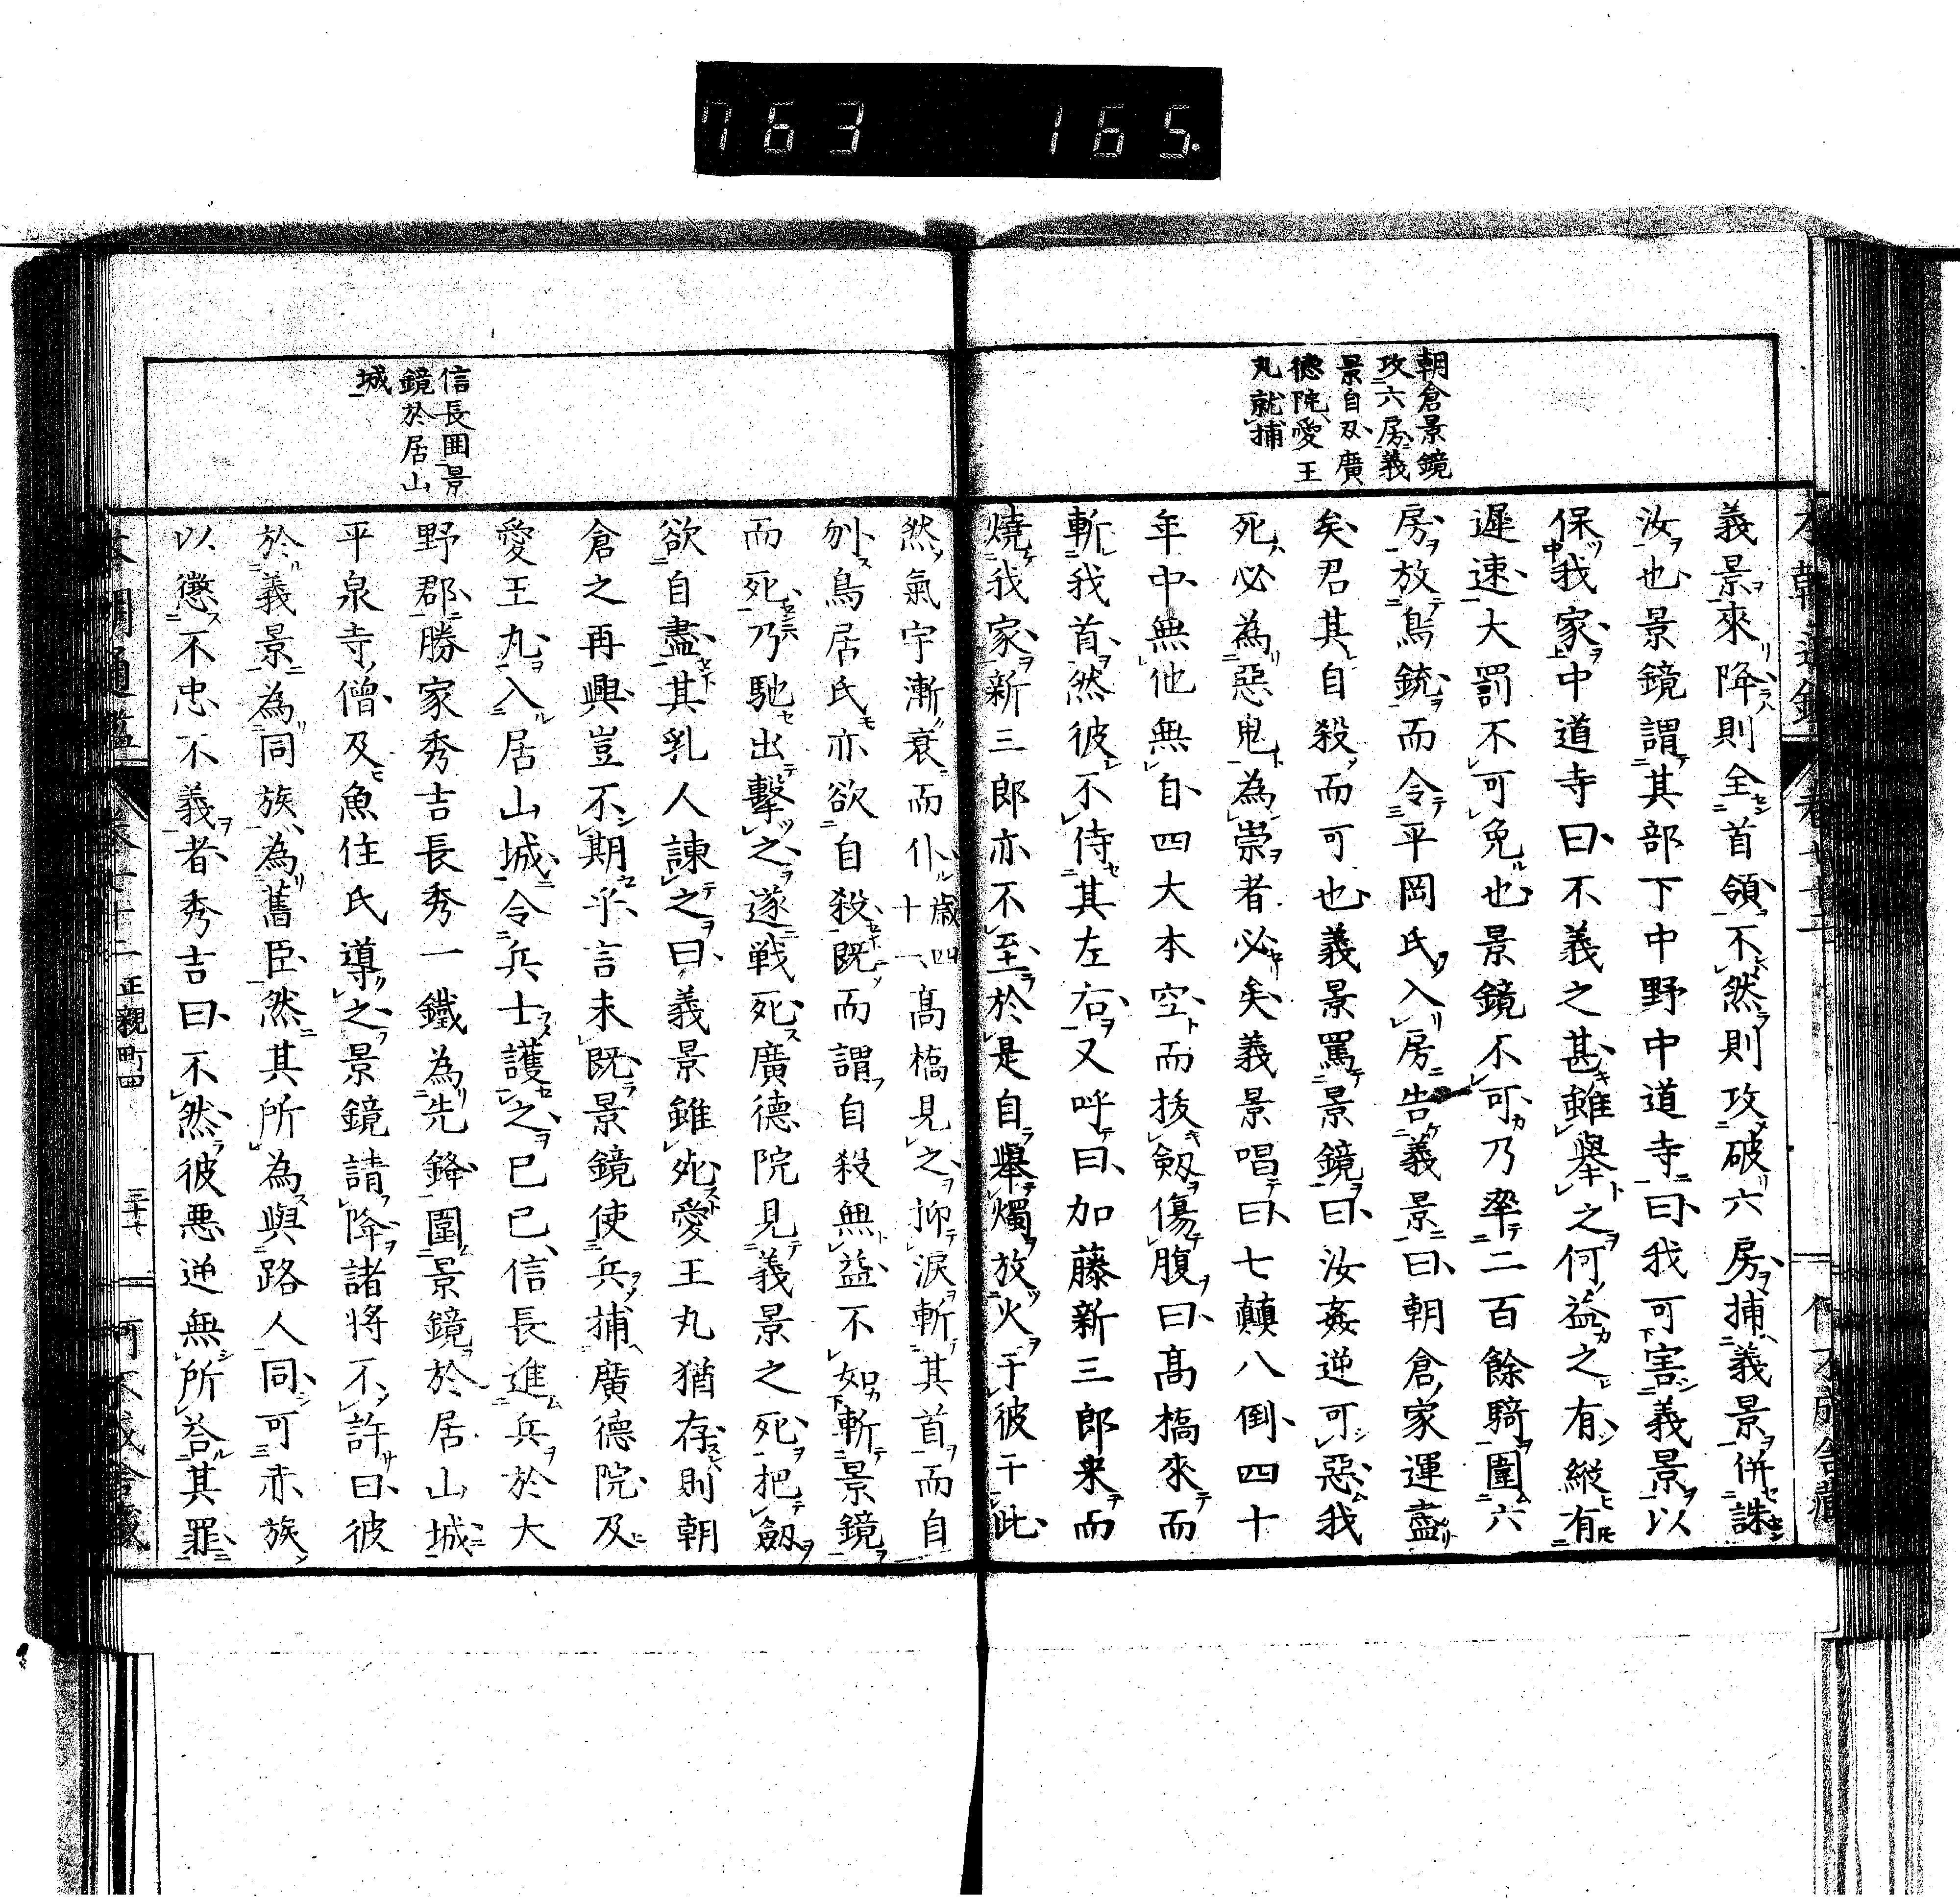 763 165.
朝倉景鏡
攻六房義
景自刄廣
德院愛王
丸就捕
義景來降則全首領不然則攻破六房捕義景併誅
汝也景鏡謂其部下中野中道寺曰我可害義景以
保我家中道寺曰不義之甚雖擧之何益之有縱有
遲速大罰不可免也景鏡不可乃率二百餘騎圍六
房放鳥銃而令平岡氏入房告義景曰朝倉家運盡
矣君其自殺而可也義景罵景鏡曰汝姦逆可惡我
死必為惡鬼為崇者必矣義景唱曰七顛八倒四十
年中無他無自四大本空而拔劔傷腹曰髙橋來而
斬我首然彼不侍其左右又呼曰加藤新三郎来而
燒我家新三郎亦不至於是自擧燭放火于彼于此
信長圍景
鏡於居山
城
然氣宇漸衰而仆歲四十一髙橋見之抑淚斬其首而自
刎鳥居氏亦欲自殺既而謂自殺無益不如斬景鏡
而死乃馳出擊之遂戰死廣德院見義景之死把劔
欲自盡其乳人諫之曰義景雖死愛王丸猶存則朝
倉之再興豈不期乎言未既景鏡使兵捕廣德院及
愛王丸入居山城令兵士護之己巳信長進兵於大
野郡勝家秀吉長秀一鐵為先鋒圍景鏡於居山城
平泉寺僧及魚住氏導之景鏡請降諸將不許曰彼
於義景為同族為舊臣然其所為與路人同可赤族
以懲不忠不義者秀吉曰不然彼悪逆無所荅其罪
正親町四
三十七